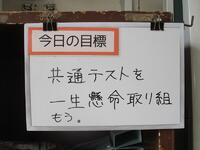 今日の目標
共通テストを
一生懸命取り組
もう。